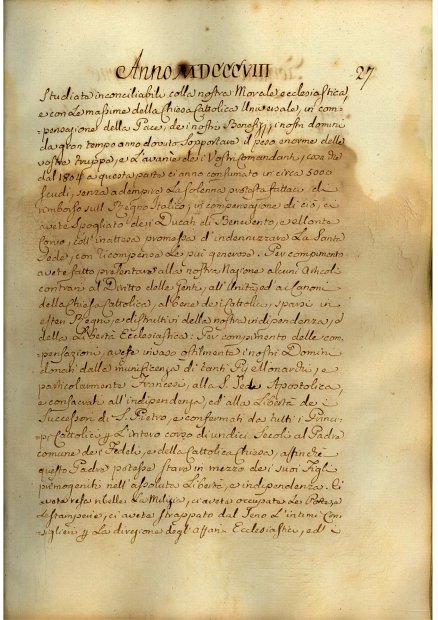 Anno MDCCCVIII 27
Studiata inconciliabili colla nostra Morale ecclesiastica,
e con le massime della Chiesa Cattolica Universale, in com-
pensazione della Pace, dei nostri Benefizj, i nostri domini
da gran tempo anno dovuto sopportare il peso enorme delle
vostre truppe, e Le avanie dei Vostri Comandanti,
dal 180 a questa parte ci anno consumato in circa 5000
scudi, senza adempire La solenne promessa fattaci di
rimborso sul Regno Italico; in compensazione di ciò, ci
avete spogliato dei Ducati di Benevento, e
Corvo, coll' inattesa promessa d'indennizzare La Santa
Sede, con Ricompense Le più generose. Per compimento
avete fatto presentare alla nostra Nazione alcuni Articoli
contrari al Diritto delle Genti, all'Unità, ed ai Canoni
della Chiesa Cattolica, al bene dei Cattolici, sparsi in
esteri Regni, e distruttivi della nostra indipendenza, e
della Libertà Ecclesiastica: Per compimento delle com-
pensazioni avete invaso ostilmente i nostri Domini
donati dalla munificenza di tanti Pij Monarchi, e
particolarmente Francesi, alla S. Sede Apostolica,
e consacrati all'indipendenza, ed alla Libertà dei
Successori di S. Pietro, e confermati da tutti i Princi-
pi Cattolici p L'intero corso di undici Secoli al Padre
comune dei Fedeli, e della Cattolica Chiesa, affinchè
questo Padre potesse stare in mezzo dei suoi Figli
primogeniti nell'assoluta Libertà, e indipendenza. Ci
avete resa ribelle La Milizia, ci avete occupate Le Poste, e
Le stamperie, ci avete strappato dal Seno L'intimi Con-
siglieri p La direzione degli affari Ecclesiastici, ed i